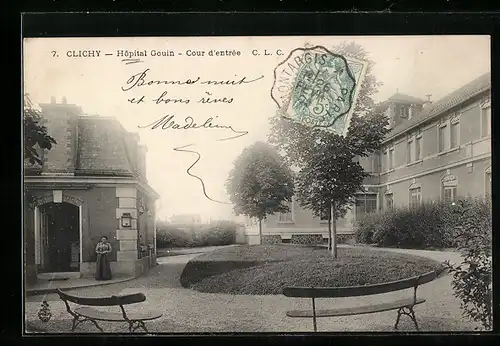 7. CLICHY — Hôpital Gouin - Cour d'entrée C. L. C.
Bonne nuit
et bons rêves
Madeleine
MONTARGIS